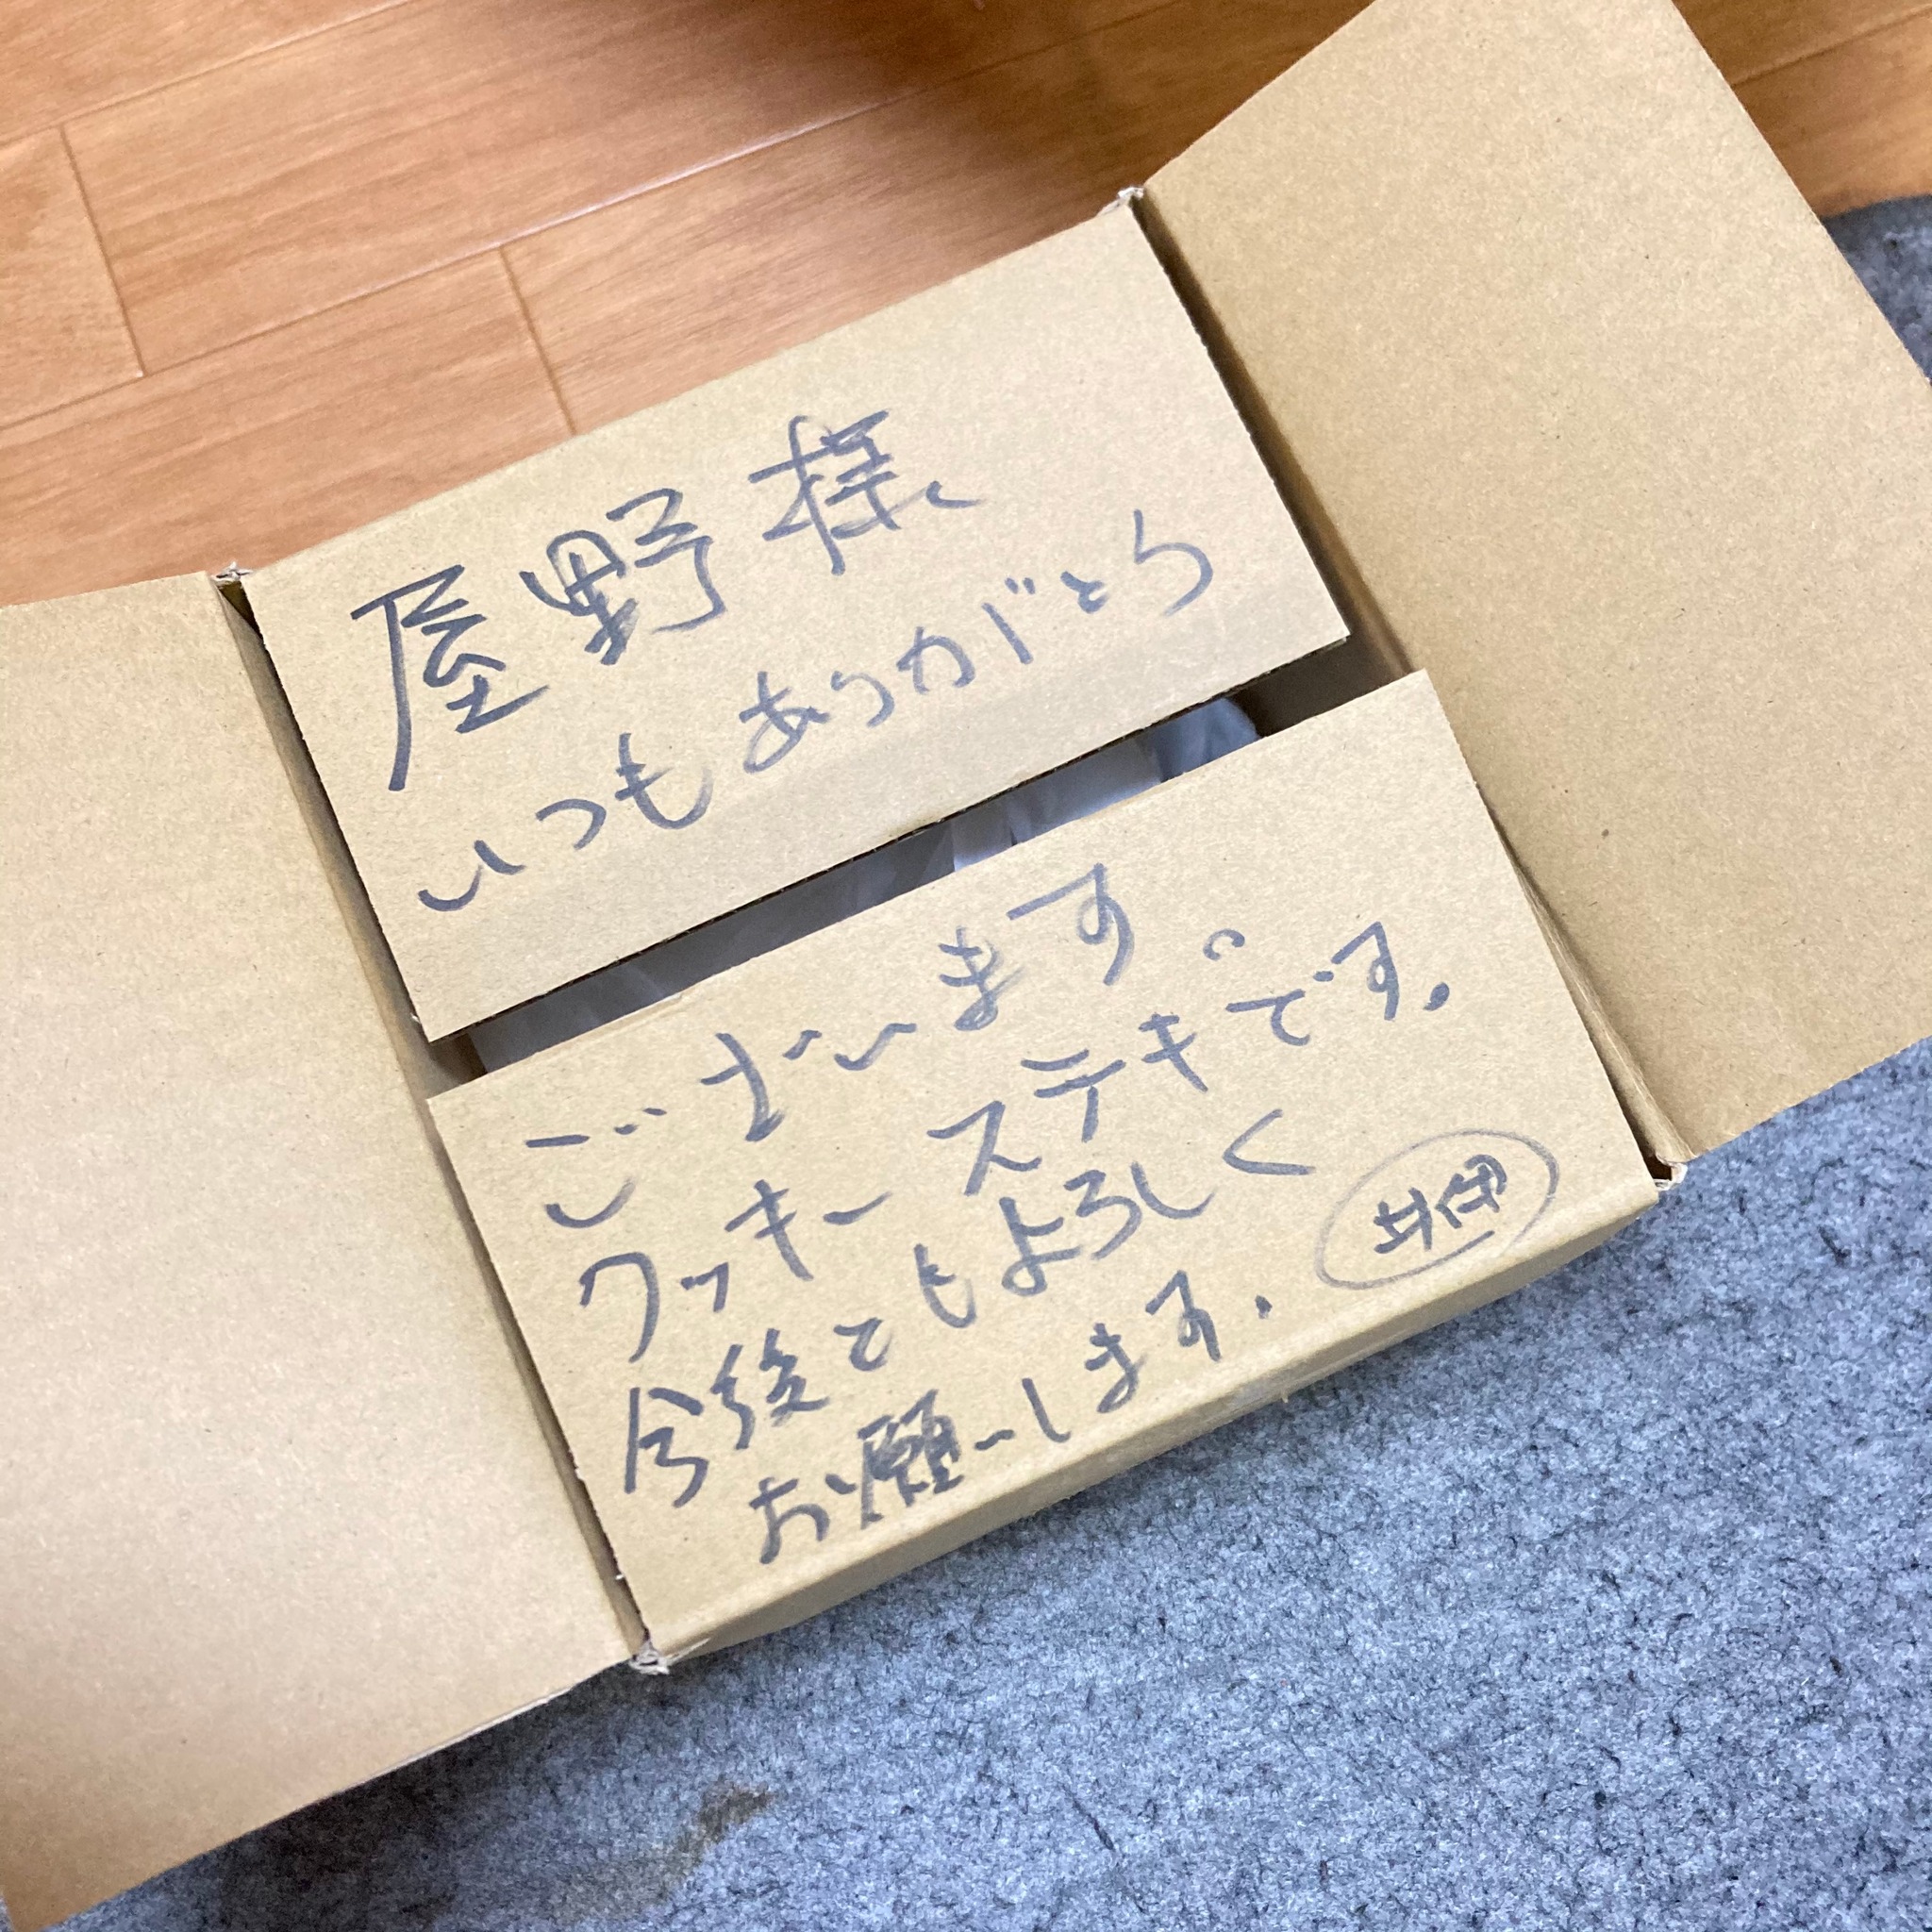 屋野様
いつもありがとう
ございます。
クッキーステキです。
今後ともよろしく
お願いします.